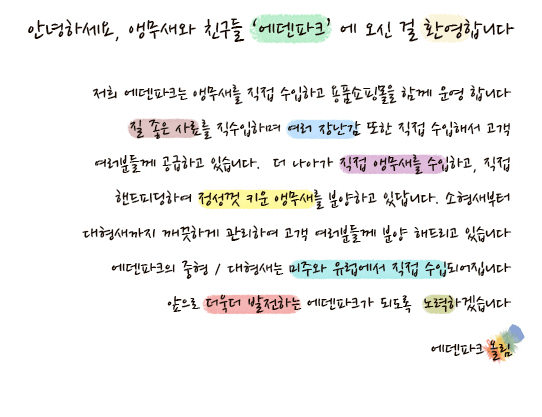 안녕하세요, 앵무새와 친구들 '에덴파크' 에 오신 걸 환영합니다
저희 에덴파크는 앵무새를 직접 수입하고 용품쇼핑몰을 함께 운영 합니다
질 좋은 사료를 직수입하며 여러 장난감 또한 직접 수입해서 고객
여러분들께 공급하고 있습니다. 더 나아가 직접 앵무새를 수입하고, 직접
핸드피딩하여 정성껏 키운 앵무새를 분양하고 있답니다. 소형새부터
대형새까지 깨끗하게 관리하여 고객 여러분들께 분양 해드리고 있습니다
에덴파크의 중형 / 대형새는 미주와 유럽에서 직접 수입되어집니다
앞으로 더욱더 발전하는 에덴파크가 되도록 노력하겠습니다
에덴파크 올림